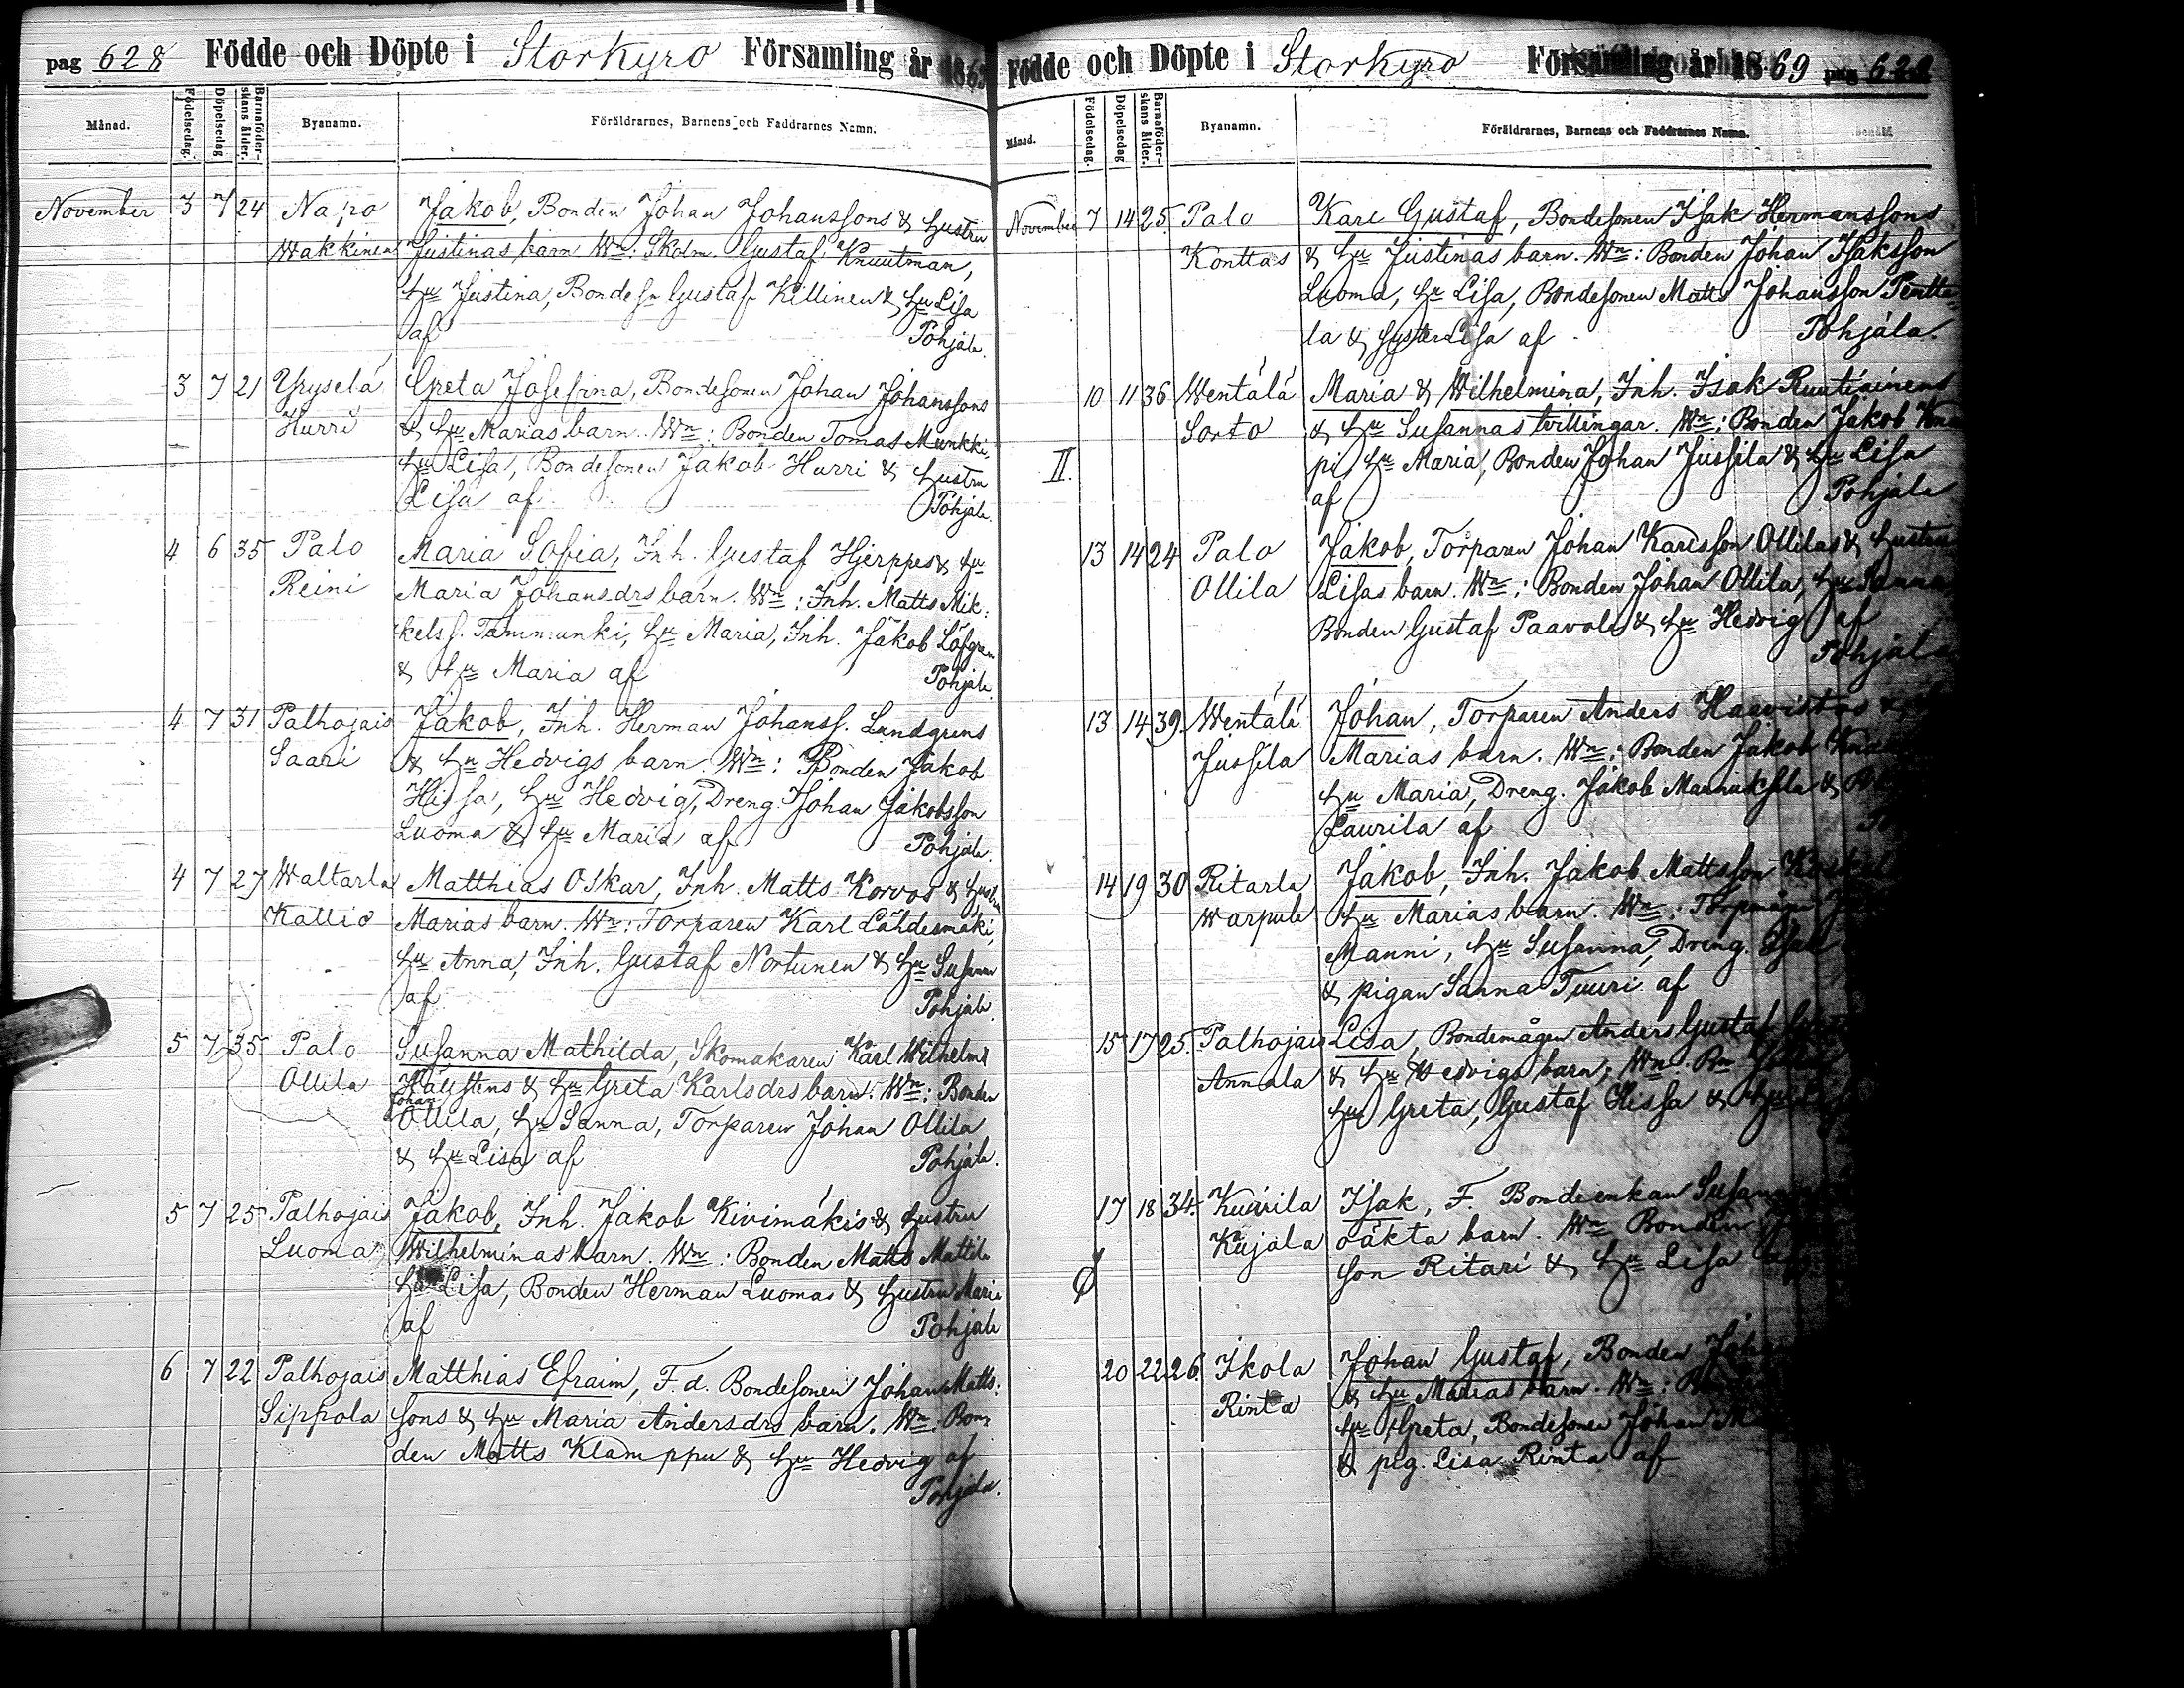 pag 628 Födde och Döpte i Storkyro Församling år 1869
Månad. Födelsedag. Döpelsedag Barnaföder-skans ålder. Byanamn. Föräldrarnes, Barnens och Faddrarnes Namn.
November 3 7 24 Napo Jakob, Bonden Johan Johanssons & hustru
Wakkinen Justinas barn Wn: Skolm. Gustaf Knuutman,
hu Justina, Bondes Gustaf Killinen & hu Lisa
af Pohjala.
3 7 21 Yryselä Greta Josefina, Bondesonen Johan Johanssons
Hurri & hu Marias barn. Wn: Bonden Tomas Munkki,
hu Lisa, Bondesonen Jakob Hurri & hustru
Lisa af Pohjala.
4 6 35 Palo Maria Sofia, Inh. Gustaf Hjerppes & hu
Reini Maria Johansdrs barn. Wn: Inh. Matts Mik-
kelss. Tammunki, hu Maria, Inh. Jakob Löfgren
& hu Maria af Pohjala.
4 7 31 Palhojais Jakob, Inh. Herman Johanss. Lundgrens
Saari & hu Hedvigs barn. Wn: Bonden Jakob
Hissa, hu Hedvig, Dreng. Johan Jakobsson
Luoma & hu Maria af Pohjala.
4 7 27 Waltarla Matthias Oskar, Inh. Matts Korvos & hustru
Kallio Marias barn. Wn: Torparen Karl Lähdesmäki,
hu Anna, Inh. Gustaf Nortunen & hu Susanna
af Pohjala.
5 7 35 Palo Susanna Mathilda, Skomakaren Karl Wilhelms
Ollila Hällstens & hu Greta Karlsdrs barn. Wn: Bonden
Johan
Ollila, hu Sanna, Torparen Johan Ollila
& hu Lisa af Pohjala.
5 7 25 Palhojais Jakob, Inh. Jakob Kivimäkis & hustru
Luoma Wilhelminas barn. Wn: Bonden Matts Mattila
hu Lisa, Bonden Herman Luomas & hustru Maria
af Pohjala
6 7 22 Palhojais Matthias Efraim, F.d. Bondesonen Johan Matts-
Sippola sons & hu Maria Andersdrs barn. Wn: Bon-
den Matts Klamppu & hu Hedvig af
Pohjala.
Födde och Döpte i Storkyro Församling år 1869 pag 628
Månad. Födelsedag. Döpelsedag Barnaföder-skans ålder. Byanamn. Föräldrarnes, Barnens och Faddrarnes Namn.
November 7 14 25. Palo Karl Gustaf, Bondesonen Isak Hermanssons
Konttas & hu Justinas barn. Wn: Bonden Johan Isaksson
Luoma, hu Lisa, Bondesonen Matts Johansson Pentti-
la & syster Lisa af Pohjala.
10 11 36 Wentälä Maria & Wilhelmina, Inh. Isak Ruutiainens
Sorto & hu Susannas tvillingar. Wn: Bonden Jakob
II. pi, hu Maria, Bonden Johan Jussila & hu Lisa
af Pohjala
13 14 24 Palo Jakob, Torparen Johan Karlsson Ollilas & hustru
Ollila Lisas barn. Wn: Bonden Johan Ollila, hu Sanna,
Bonden Gustaf Paavola & hu Hedvig af
Pohjala
13 14 39. Wentälä Johan, Torparen Anders Haavistos &
Jussila Marias barn. Wn: Bonden Jakob
hu Maria, Dreng. Jakob Mannuksela &
Laurila af
14 19 30 Ritarla Jakob, Inh. Jakob Mattsson
Warpula hu Marias barn. Wn:
Manni, hu Susanna, Dreng.
& pigan Sanna Tuuri af
15 17 25. Palhojais Lisa, Bondemågen Anders Gustaf
Annala & hu Hedvigs barn, Wn.
hu Greta, Gustaf Hissa & hu
17 18 34. Kuurila Isak, F. Bondeenkan
Kujala oäkta barn. Wn Bonden
son Ritari & hu Lisa
20 22 26 Ikola Johan Gustaf, Bonden
Rinta & hu Marias barn. Wn:
hu Greta, Bondesonen Johan
& pig. Lisa Rinta af